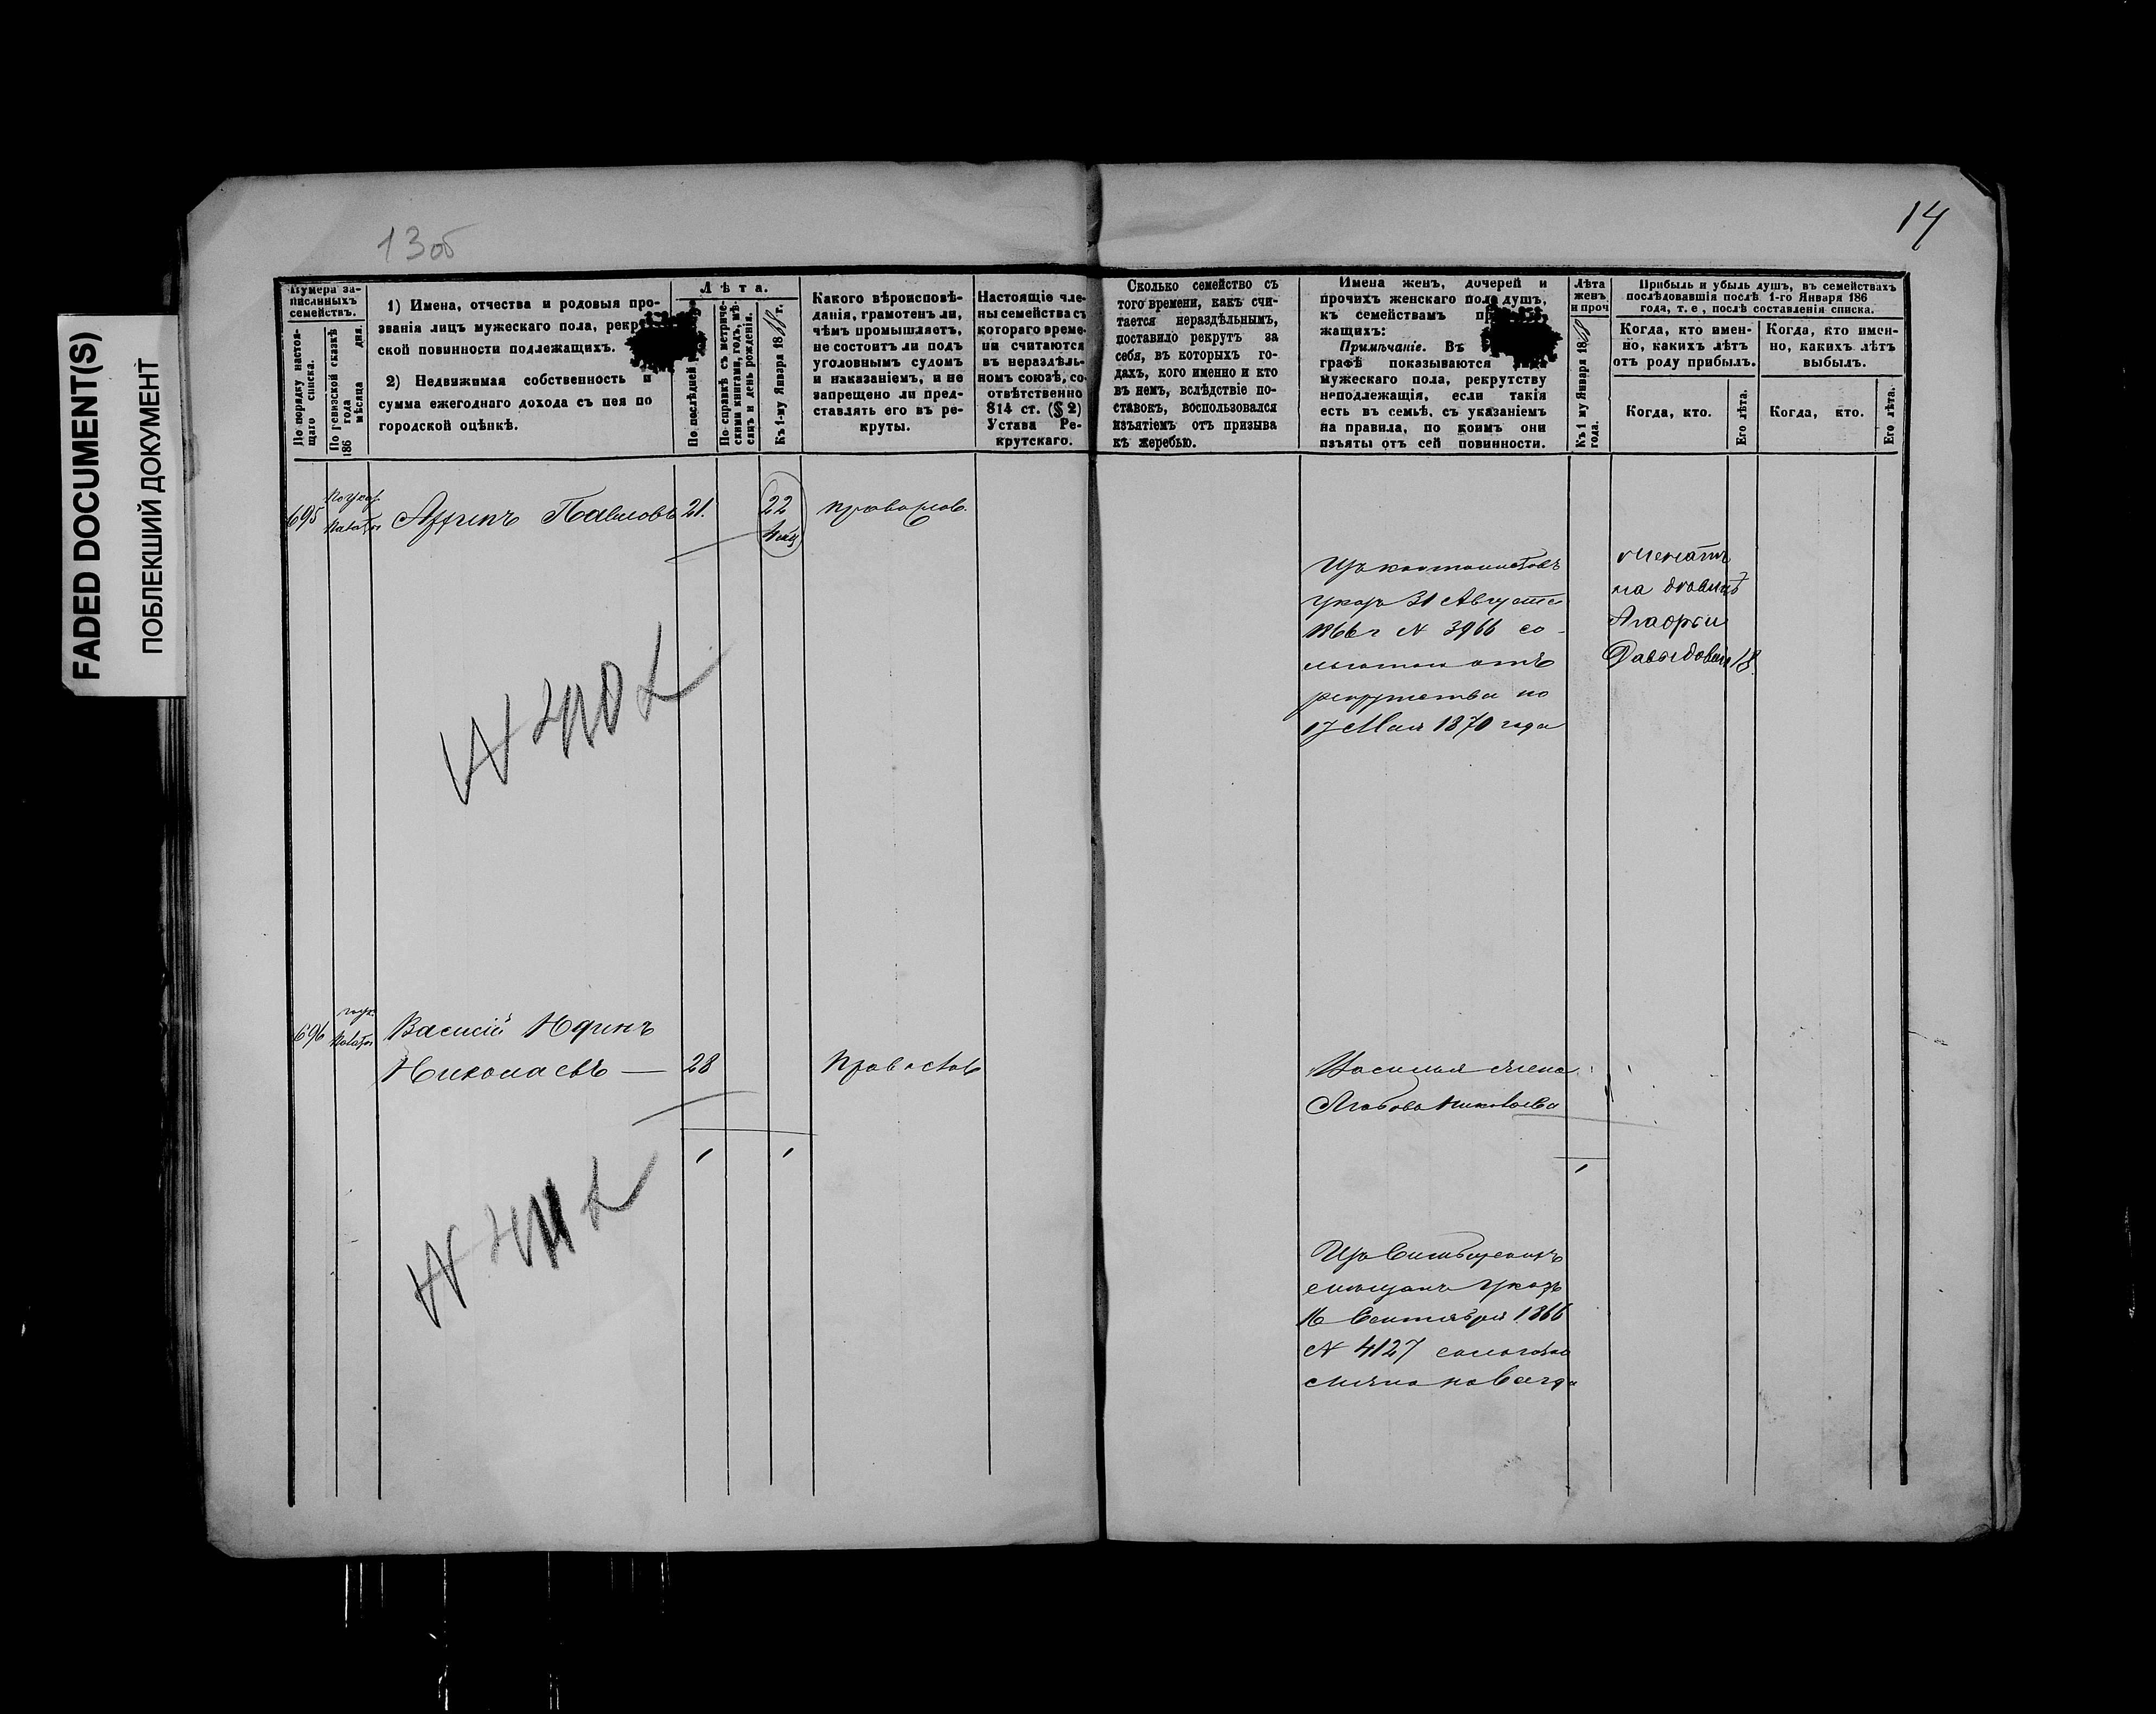 FADED DOCUMENT(S)
ПОБЛЕКШИЙ ДОКУМЕНТ
13об
14
Нумера за-
писанныхъ
семействъ.
По порядку настоя-
щаго списка.
По ревизской сказкѣ
186 года
мѣсяца дня.
1) Имена, отчества и родовыя про-
званія лицъ мужескаго пола, рекр
ской повинности подлежащихъ.
2) Недвижимая собственность и
сумма ежегоднаго дохода съ нея по
городской оцѣнкѣ.
Лѣта.
По послѣдней
По справкѣ съ метриче-
скими книгами, годъ, мѣ-
сяцъ и день рожденія.
Къ 1-му Января 1868 г.
Какого вѣроисповѣ-
данія, грамотенъ ли,
чѣмъ промышляетъ,
не состоитъ ли подъ
уголовнымъ судомъ
и наказаніемъ, и не
запрещено ли пред-
ставлять его въ ре-
круты.
Настоящіе чле-
ны семейства съ
котораго време-
ни считаются
въ нераздѣль-
номъ союзѣ, со-
отвѣтственно
814 ст. (§ 2)
Устава Ре-
крутскаго.
Сколько семейство съ
того времени, какъ счи-
тается нераздѣльнымъ,
поставило рекрутъ за
себя, въ которыхъ го-
дахъ, кого именно и кто
въ немъ, вслѣдствіе по-
ставокъ, воспользовался
изъятіемъ отъ призыва
къ жеребью.
Имена женъ, дочерей и
прочихъ женскаго пола душъ,
къ семействамъ пр
жащихъ:
Примѣчаніе. Въ
графѣ показываются
мужескаго пола, рекрутству
неподлежащія, если такія
есть въ семьѣ, съ указаніемъ
на правила, по коимъ они
изъяты отъ сей повинности.
Лѣта
женъ
и проч
Къ 1 му Января 1868
года.
Прибыль и убыль душъ, въ семействахъ
послѣдовавшія послѣ 1-го Января 186
года, т. е, послѣ составленія списка.
Когда, кто имен-
но, какихъ лѣтъ
отъ роду прибылъ.
Когда, кто имен-
но, какихъ лѣтъ
выбылъ.
Когда, кто.
Его лѣта.
Когда, кто.
Его лѣта.
695
Павловъ 21.
22
правослов.
Изъ кантонистовъ
указъ 31 Августа
1866 г N 3966 со
льготою отъ
рекрутства по
17 Мая 1870 года
женатъ
на
Давыдовой 18
N 410
696
Василій
Николаевъ — 28
Правослов
Василья жена
Любовь Николаева
1 1
1
N 411
Изъ Симбирскихъ
мещанъ Указъ
16 Сентября 1866
N 4127